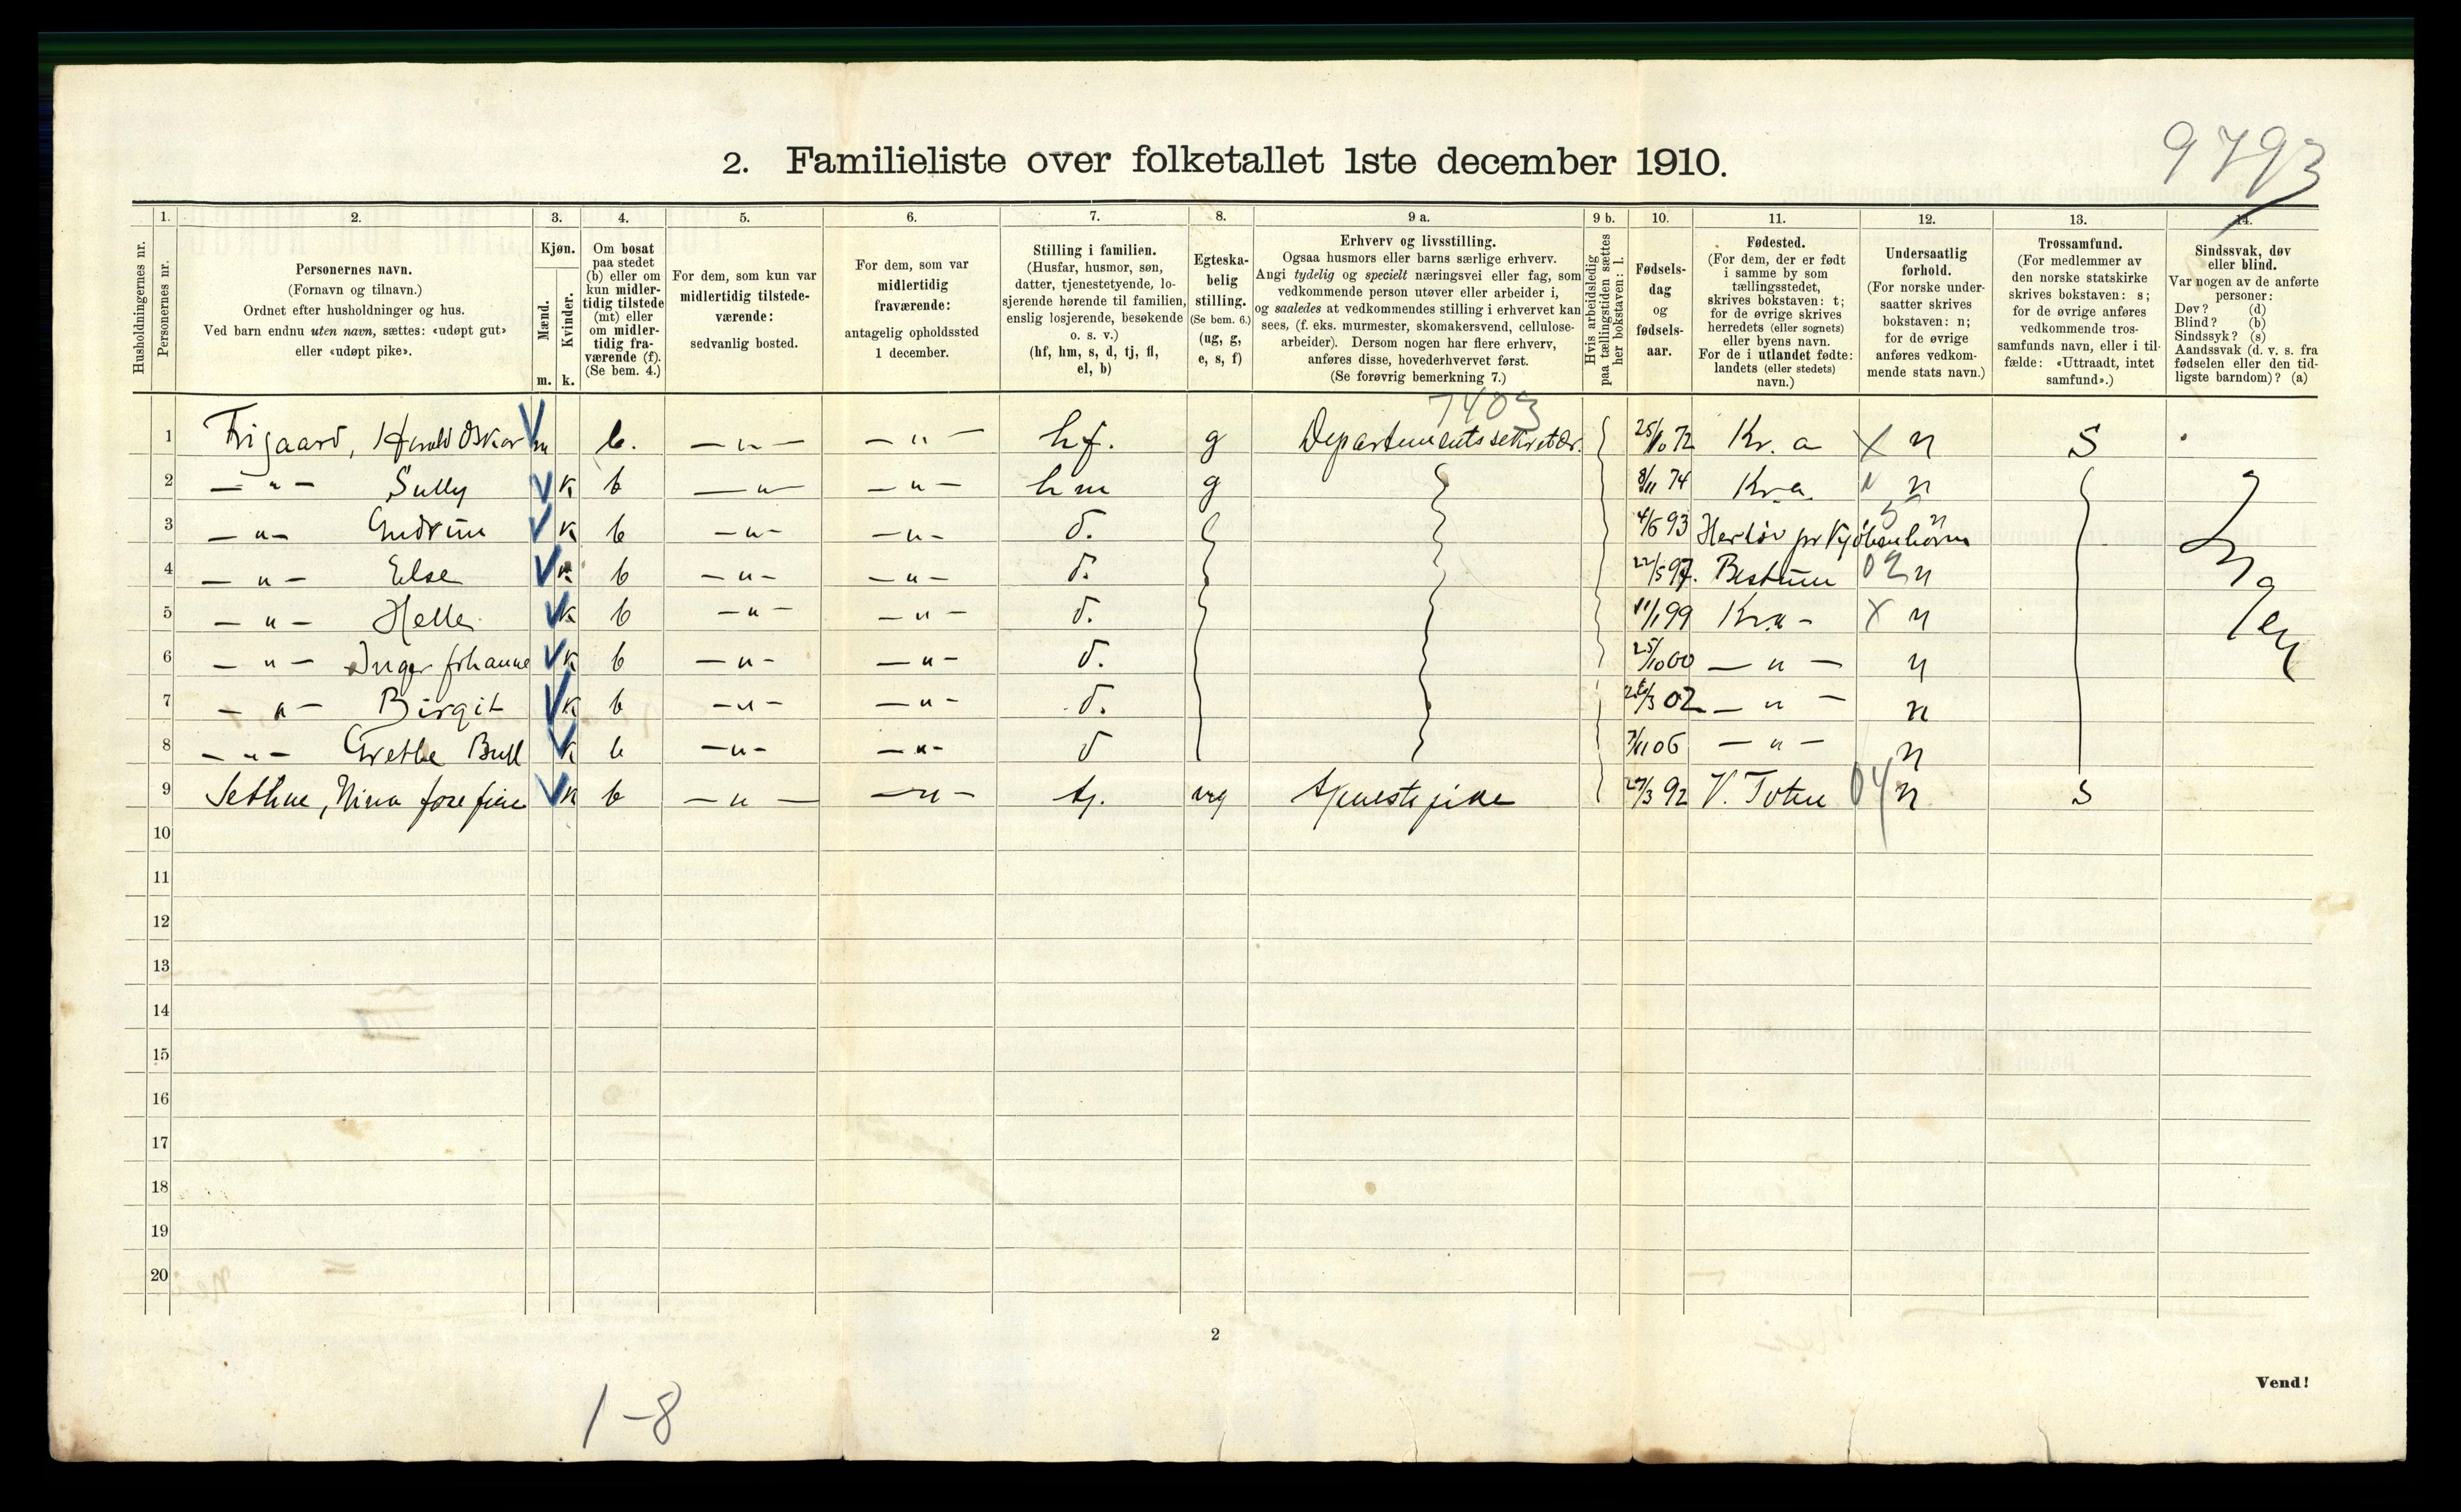 9793
2. Familieliste over folketallet 1ste december 1910.
Husholdningernes nr.
1. Personernes nr.
2. Personernes navn. (Fornavn og tilnavn.) Ordnet efter husholdninger og hus. Ved barn endnu uten navn, sættes: «udøpt gut» eller «udøpt pike».
3. Kjøn. Mænd. m. Kvinder. k.
4. Om bosat paa stedet (b) eller om kun midlertidig tilstede (mt) eller om midlertidig fraværende (f). (Se bem. 4.)
5. For dem, som kun var midlertidig tilstedeværende: sedvanlig bosted.
6. For dem, som var midlertidig fraværende: antagelig opholdssted 1 december.
7. Stilling i familien. (Husfar, husmor, søn, datter, tjenestetyende, losjerende hørende til familien, enslig losjerende, besøkende o. s. v.) (hf, hm, s, d, tj, fl, el, b)
8. Egteskabelig stilling. (Se bem. 6.) (ug, g, e, s, f)
9 a. Erhverv og livsstilling. Ogsaa husmors eller barns særlige erhverv. Angi tydelig og specielt næringsvei eller fag, som vedkommende person utøver eller arbeider i, og saaledes at vedkommendes stilling i erhvervet kan sees, (f. eks. murmester, skomakersvend, cellulosearbeider). Dersom nogen har flere erhverv, anføres disse, hovederhvervet først. (Se forøvrig bemerkning 7.)
9 b. Hvis arbeidsledig paa tællingstiden sættes her bokstaven: l.
10. Fødselsdag og fødselsaar.
11. Fødested. (For dem, der er født i samme by som tællingsstedet, skrives bokstaven: t; for de øvrige skrives herredets (eller sognets) eller byens navn. For de i utlandet fødte: landets (eller stedets) navn.)
12. Undersaatlig forhold. (For norske undersaatter skrives bokstaven: n; for de øvrige anføres vedkommende stats navn.)
13. Trossamfund. (For medlemmer av den norske statskirke skrives bokstaven: s; for de øvrige anføres vedkommende trossamfunds navn, eller i tilfælde: «Uttraadt, intet samfund».)
14. Sindssvak, døv eller blind. Var nogen av de anførte personer: Døv? (d) Blind? (b) Sindssyk? (s) Aandssvak (d. v. s. fra fødselen eller den tidligste barndom)? (a)
7403
1 Frigaard, Harald Oskar m b. — " — — " — hf. g Departementssekretær. 25/10 72 Kr.a X n S
2 — " — Sully k b — " — — " — hm g 8/11 74 Kr.a. " n
3 — " — Gudrun k b — " — — " — d. 4/6 93 Herløv pr Kjøbenhavn 5 n
4 — " — Else k b — " — — " — d. 22/5 97. Bestum 02 n
5 — " — Helle k b — " — — " — d. 11/1 99 Kr.a - X n
6 — " — Inger Johanne k b — " — — " — d. 25/10 00 — " — n
7 — " — Birgit k b — " — — " — d. 26/3 02 — " — n
8 — " — Grethe Bull k b — " — — " — d 7/11 06 — " — n
Ingen
9 Sethne, Nina Josefine k b — " — — " — tj. ug tjenestepike 27/3 92 V. Toten 04 n S
10
11
12
13
14
15
16
17
18
19
20
2
Vend!
1-8